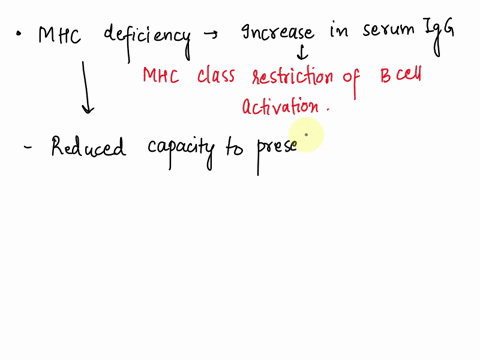 • MHC deficiency → Increase in serum IgG
↓
MHC class restriction of B cell
Activation.
↓
- Reduced capacity to prese